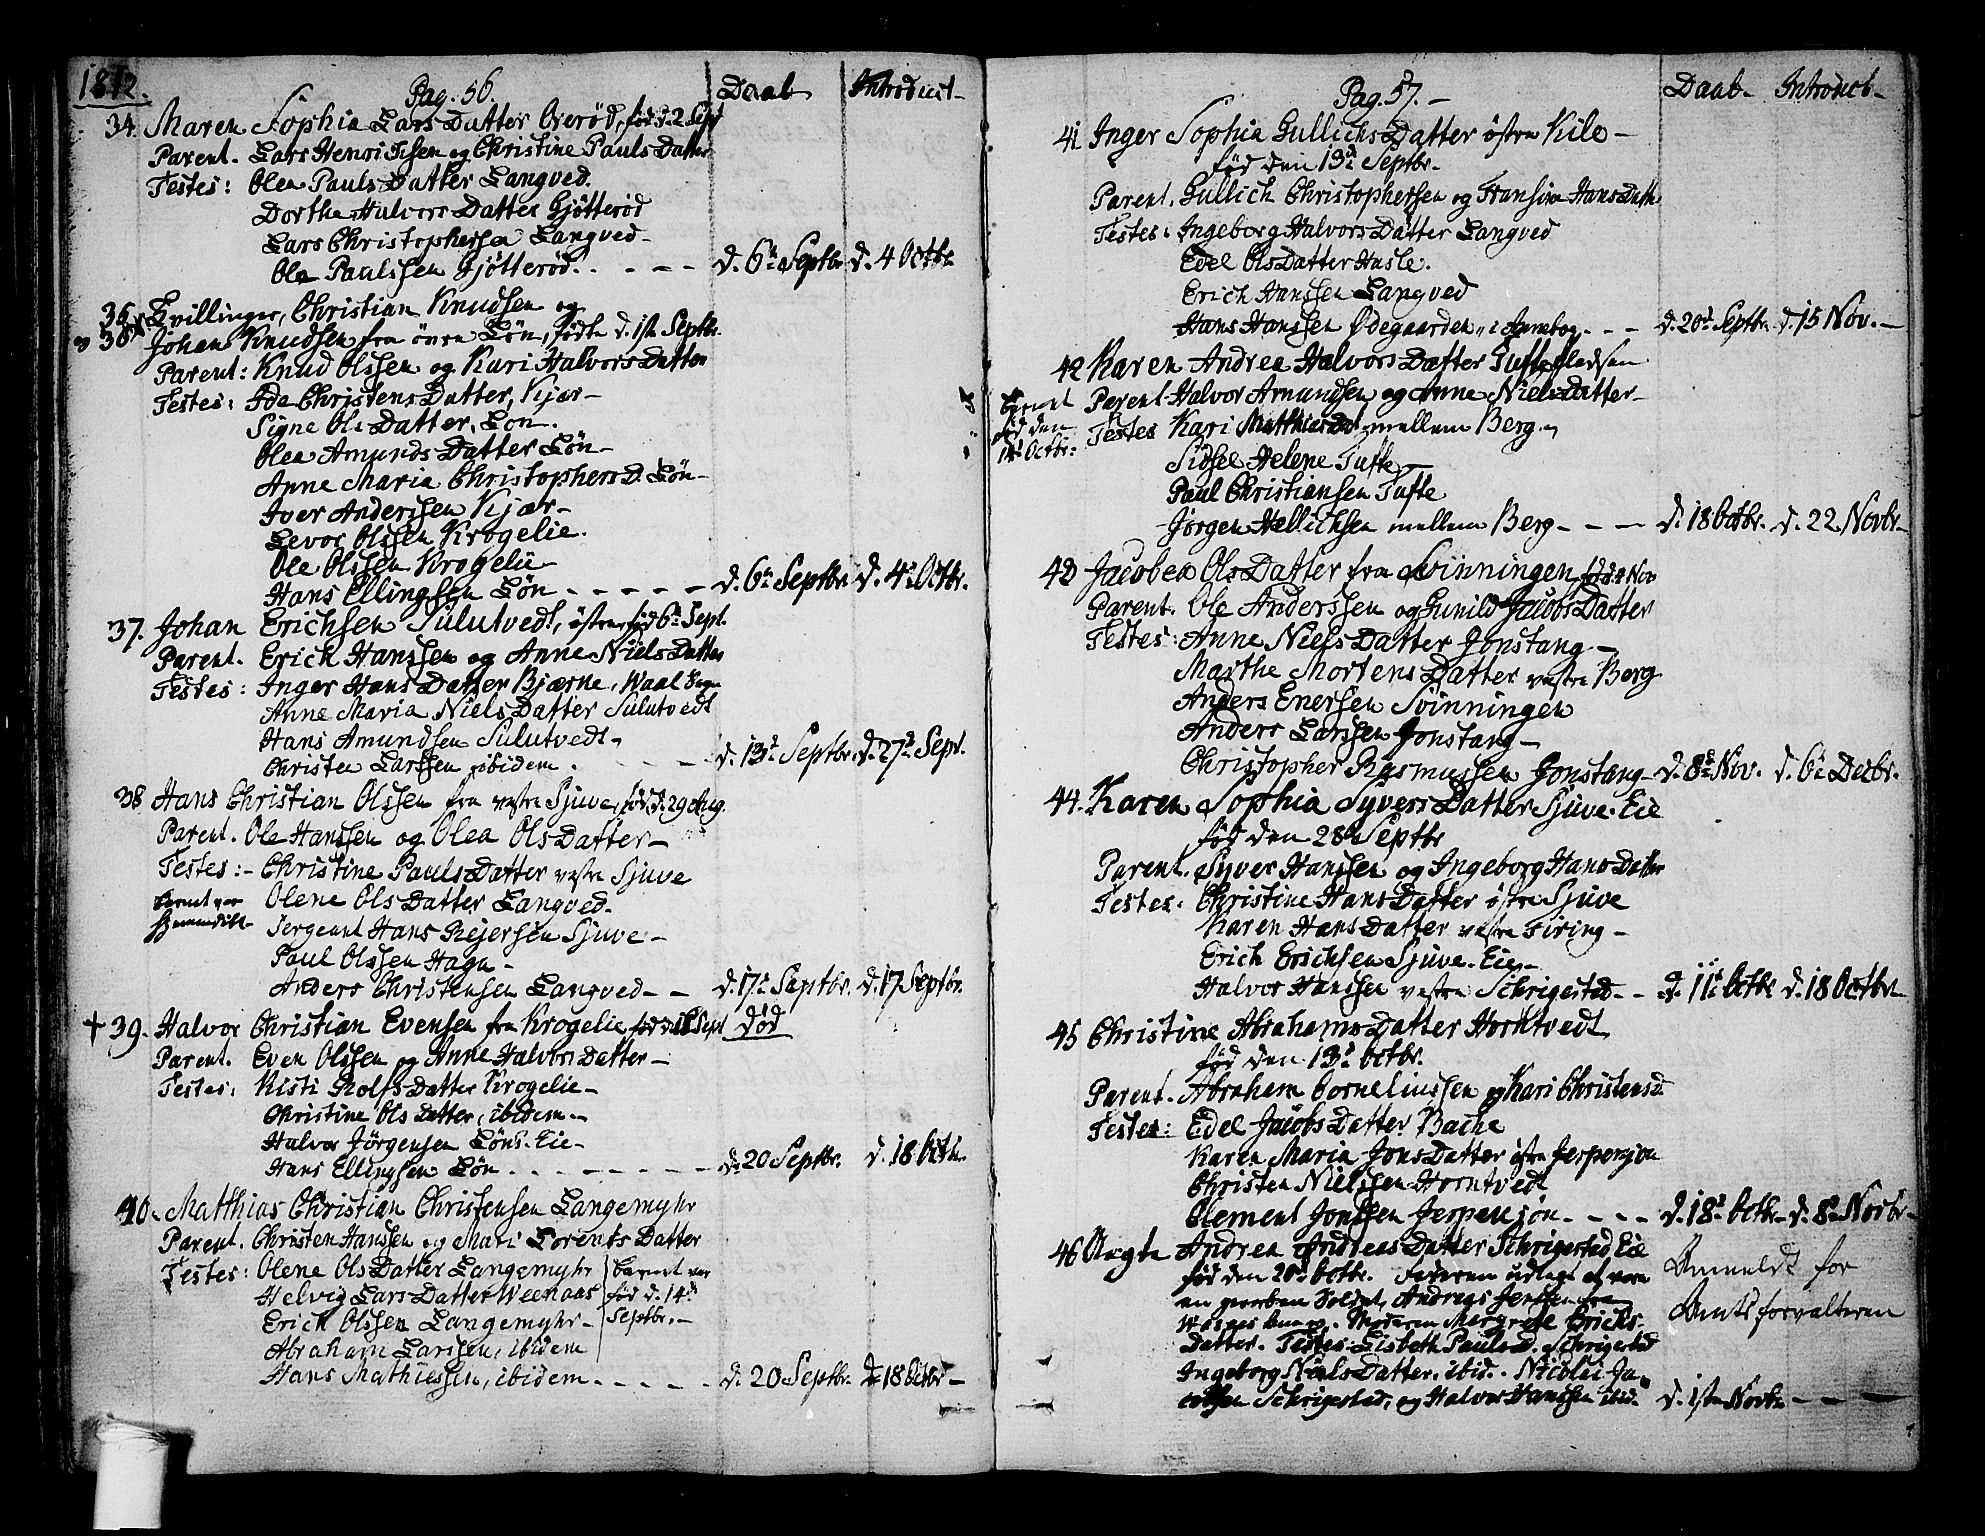 1812.
Pag. 56
Daab
Introduct-
34. Maren Sophia Lars Datter Overød, fød d. 2 Sept
Parent. Lars Henrichsen og Christine Pauls Datter
Testes: Olea Pauls Datter Langved.
Dorthe Halvors Datter Gjøtterød
Lars Christophersen Langved-
Ole Paulssen Gjøtterød. - - - - d. 6te Septbr d. 4 Octbr.
35
Tvillinger, Christian Knudsen og
36
Johan Knudsen fra øvre Løn, fødte d. 1ste Septbr.
Parent: Knud Olssen og Kari Halvors Datter
Testes: Ide Christens Datter, Kjær-
Signe Ols Datter, Løn.
Olea Amunds Datter Løn-
Anne Maria Christophers D. Løn-
Iver Anderssen Kjær-
Levor Olssen Krogelie.
Ole Olssen Krogelie
Hans Ellingsen Løn - - - - - d. 6te Septbr. d. 4de Octbr.
37. Johan Erichsen Sulutvedt, østre, fød 6te Sept.
Parent. Erich Hanssen og Anne Niels Datter
Testes: Inger Hans Datter Bjærne, Waal Sogn
Anne Maria Niels Datter Sulutvedt
Hans Amundsen Sulutvedt-
Christen Larssen ibidem. - - - d. 13de Septbr. d. 27de Sept.
38 Hans Christian Olssen fra vestre Sjuve, fød d. 29 Aug.
Parent. Ole Hanssen og Olea Ols Datter-
Testes:- Christine Pauls Datter vestre Sjuve
Barnet var
hjemmedøbt-
Olene Ols Datter Langved.
Sergeant Hans Rejersen Sjuve-
Paul Olssen Hagn-
Anders Christensen Langved- - d. 17de Septbr. d. 17 Septbr.
† 39. Halvor Christian Evensen fra Krogelie, fød d. 18 Sept død
Parent. Even Olssen og Anne Halvors Datter-
Testes: Kisti Rolfs Datter Krogelie-
Christine Ols Datter, ibidem.-
Halvor Jørgensen Løns-Eie-
Hans Ellingsen Løn - - - - - - d. 20 Septbr. d. 18 Octbr.
40. Matthias Christian Christensen Langemyhr
Parent. Christen Hanssen og Mari Lorents Datter
Testes: Olene Ols Datter Langemyhr
Barnet var
Helvig Lars Datter Weenaas
fød d. 14de
Erich Olssen Langemyhr-
Septbr.-
Abraham Larssen, ibidem
Hans Mathiessen, ibidem - - - - - d. 20 Septbr. d. 18 Octbr-
Pag. 57.-
Daab-
Introduct-
41 Inger Sophia Gullichs Datter østre Kile-
fød den 13de Septbr.
Parent. Gullich Christophersen og Hansine Hans Datter
Testes: Ingeborg Halvors Datter Langved
Edel Ols Datter Hasle.
Erich Hanssen Langved
Hans Hanssen Ødegaarden - - - d. 20de Septbr. d. 15 Nov.-
42 Karen Andrea Halvors Datter Tufte Pladsen
Barnet
fød den
14de Octbr:
Parent Halvor Amundsen og Anne Niels Datter-
Testes Kari Matthias Dat. mellem Berg-
Sidsel Helene Tufte-
Paul Christiansen Tufte
Jørgen Hellichsen mellem Berg- - - d. 18 Octbr. d. 22 Novbr-
43 Jacobea Ols Datter fra Svinningen, fød d. 4 Nov
Parent. Ole Anderssen og Gunild Jacobs Datter
Testes: Anne Niels Datter Jonstang-
Marthe Mortens Datter vestre Berg
Anders Enersen Svinningen
Anders Larssen Jonstang-
Christopher Rasmussen Jonstang- d. 8de Nov. d. 6te Decbr.
44. Karen Sophia Syvers Datter Sjuve-Eie
fød den 28de Septbr
Parent. Syver Hanssen og Ingeborg Hans Datter
Testes: Christine Hans Datter østre Sjuve
Karen Hans Datter vestre Firing-
Erich Erichsen Sjuve-Eie-
Halvor Hanssen vestre Schrigestad- - d. 11te Octbr. d. 18 Octbr.
45 Christine Abrahams Datter Horntvedt
fød den 13de Octbr.
Parent. Abraham Corneliussen og Kari Christensd.
Testes: Edel Jacobs Datter Bache
Karen Maria Jons Datter østre Jerpensjøn
Christen Nielssen Horntvedt
Clement Jonssen Jerpensjøn - - - - d. 18de Octbr. d. 8de Novbr-
46 Uægte Andrea Andreas Datter Schrigestad Eie
fød den 20de Octbr. Faderen udlagt at være
en gevorben Soldat, Andreas Jensen fra
Moderen Margrete Erichs-
Datter. Testes: Lisbeth Pauls D. Schrigestad
Ingeborg Niels Datter. ibid. Nicolai Ja-
cobsen Schrigestad, og Halvor Hanssen ibid. d. 1ste Novbr. - - -
Anmeldt for
Amtsforvalteren